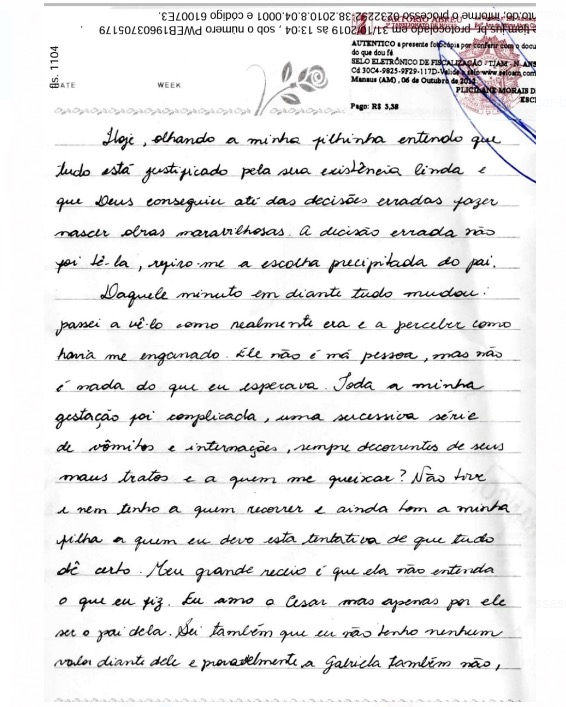 to.do, informe o processo 0232292-38.2010.8.04.0001 e código 61007E3.
protocolado em 31/10/2019 às 13:04 , sob o número PWEB196063705179
fls. 1104
DATE WEEK
CARTÓRIO ABREU
AUTENTICO a presente fotocópia por conferir com o docu
do que dou fé
SELO ELETRÔNICO DE FISCALIZAÇÃO - TJAM - N-ANS
Cd 30C4-9825-9F29-117D-Valide selo.www.seloam.com
Manaus (AM), 06 de Outubro de
PLICIANE MORAIS D
ESC
Pago: R$ 3,38
Hoje, olhando a minha filhinha entendo que
tudo está justificado pela sua existência linda e
que Deus conseguiu até das decisões erradas fazer
nascer obras maravilhosas. A decisão errada não
foi tê-la, refiro-me a escolha precipitada do pai.
Daquele minuto em diante tudo mudou:
passei a vê-lo como realmente era e a perceber como
havia me enganado. Ele não é má pessoa, mas não
é nada do que eu esperava. Toda a minha
gestação foi complicada, uma sucessiva série
de vômitos e internações, sempre decorrentes de seus
maus tratos e a quem me queixar? Não tive
e nem tenho a quem recorrer e ainda tem a minha
filha a quem eu devo esta tentativa de que tudo
dê certo. Meu grande receio é que ela não entenda
o que eu fiz. Eu amo o Cesar mas apenas por ele
ser o pai dela. Sei também que eu não tenho nenhum
valor diante dele e provavelmente, a Gabriela também não,